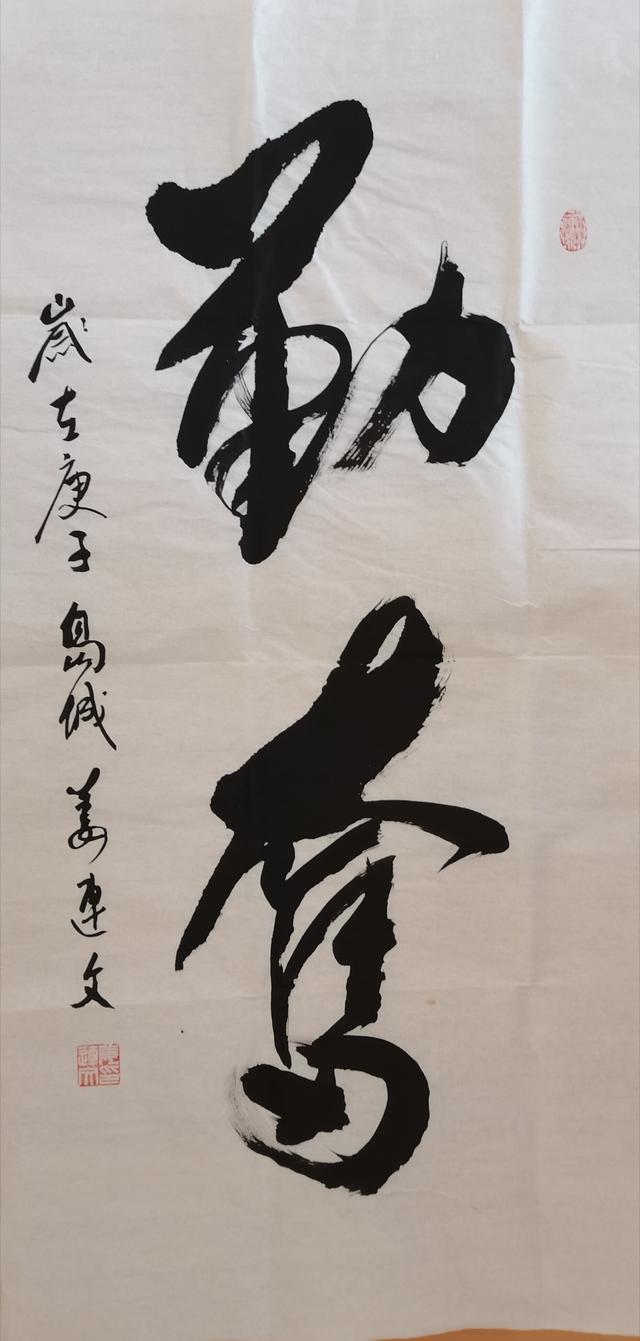 勤奮
歲在庚子島城姜連文